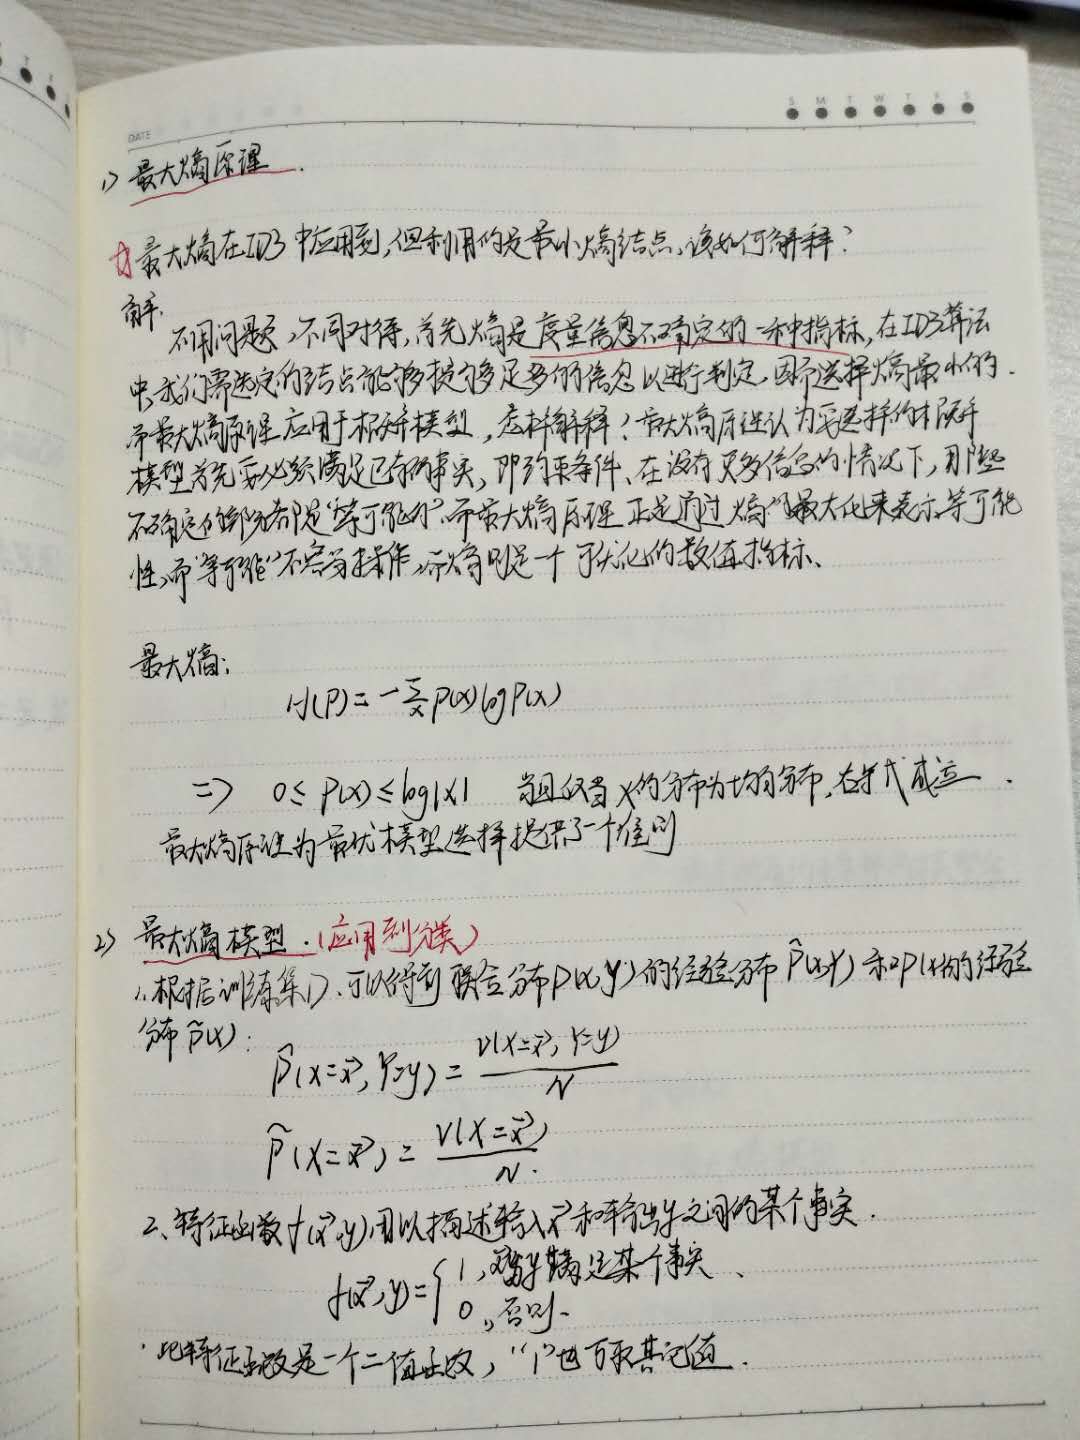 S M T W T F S
DATE
1) 最大熵原理.
最大熵在ID3中应用到,但利用的是最小熵结点,该如何解释?
解:
不同问题,不同对待,首先熵是度量信息不确定的一种指标,在ID3算法
中,我们需选定的结点能够提够足够多的信息以进行判定,因而选择熵最小的.
而最大熵原理应用于概率模型,怎样解释?最大熵原理认为要选择的概率
模型首先要必须满足已有的事实,即约束条件、在没有更多信息的情况下,那些
不确定的部分都是“等可能的”,而最大熵原理正是通过熵的最大化来表示等可能
性,而“等可能”不容易操作,而熵则是一个可优化的数值指标、
最大熵:
H(P)=-∑x P(x)logP(x)
=> 0≤P(x)≤log|X| 当且仅当X的分布为均匀分布,右等式成立.
最大熵原理为最优模型选择提供了一个准则
2) 最大熵模型.(应用到分类)
1.根据训练集D,可以得到联合分布P(x,y)的经验分布P̂(x,y)和P(x)的经验
分布P̃(x):
P̂(X=x⃗,Y=y)=ν(X=x⃗,Y=y)/N
P̃(X=x⃗)=ν(X=x⃗)/N.
2、特征函数f(x⃗,y)用以描述输入x⃗和输出y之间的某个事实.
f(x⃗,y)={1, 满足某个事实、
0,否则.
此特征函数是一个二值函数,“1”也可取其它值.